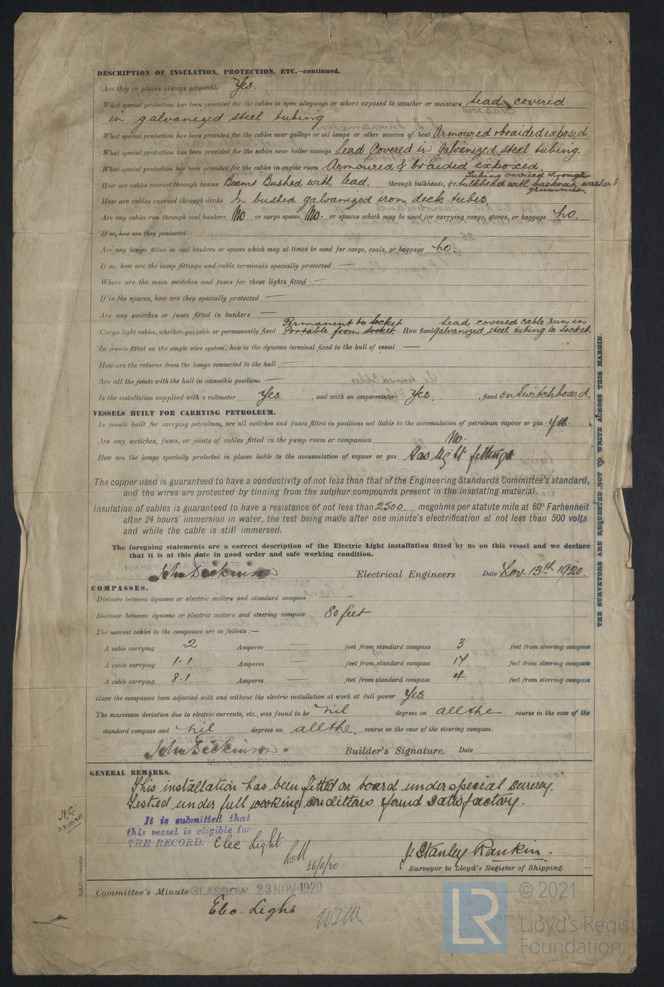 DESCRIPTION OF INSULATION, PROTECTION, ETC.—continued.
Are they in places always accessible Yes.
What special protection has been provided for the cables in open alleyways or where exposed to weather or moisture Lead covered
in galvanized steel tubing
What special protection has been provided for the cables near galleys or oil lamps or other sources of heat Armoured & braided exposed
What special protection has been provided for the cables near boiler casings Lead Covered in Galvanized steel tubing.
What special protection has been provided for the cables in engine room Armoured & braided exposed
How are cables carried through beams Beams Bushed with lead through bulkheads, &c. Tubing carried through bulkhead with washers & grummets
How are cables carried through decks In bushed galvanized iron deck tubes
Are any cables run through coal bunkers No or cargo spaces No. or spaces which may be used for carrying cargo, stores, or baggage No.
If so, how are they protected
Are any lamps fitted in coal bunkers or spaces which may at times be used for cargo, coals, or baggage No.
If so, how are the lamp fittings and cable terminals specially protected
Where are the main switches and fuses for these lights fitted
If in the spaces, how are they specially protected
Are any switches or fuses fitted in bunkers
Cargo light cables, whether portable or permanently fixed Permanent to socket Portable from socket. How fixed Lead covered cable run in galvanized steel tubing to socket.
In vessels fitted on the single wire system, how is the dynamo terminal fixed to the hull of vessel
How are the returns from the lamps connected to the hull
Are all the joints with the hull in accessible positions
Is the installation supplied with a voltmeter Yes , and with an amperemeter Yes , fixed on Switchboard
VESSELS BUILT FOR CARRYING PETROLEUM.
In vessels built for carrying petroleum, are all switches and fuses fitted in positions not liable to the accumulation of petroleum vapour or gas Yes.
Are any switches, fuses, or joints of cables fitted in the pump room or companion No.
How are the lamps specially protected in places liable to the accumulation of vapour or gas Gas tight fittings
The copper used is guaranteed to have a conductivity of not less than that of the Engineering Standards Committee's standard,
and the wires are protected by tinning from the sulphur compounds present in the insulating material.
Insulation of cables is guaranteed to have a resistance of not less than 2500 megohms per statute mile at 60° Farhenheit
after 24 hours' immersion in water, the test being made after one minute's electrification at not less than 500 volts
and while the cable is still immersed.
The foregoing statements are a correct description of the Electric Light installation fitted by us on this vessel and we declare
that it is at this date in good order and safe working condition.
John Dickinson Electrical Engineers Date Nov. 13th 1920.
COMPASSES.
Distance between dynamo or electric motors and standard compass
Distance between dynamo or electric motors and steering compass 80 feet
The nearest cables to the compasses are as follows:—
A cable carrying 2 Amperes feet from standard compass 3 feet from steering compass
A cable carrying 1.1 Amperes feet from standard compass 14 feet from steering compass
A cable carrying 8.1 Amperes feet from standard compass 4 feet from steering compass
Have the compasses been adjusted with and without the electric installation at work at full power Yes
The maximum deviation due to electric currents, etc., was found to be nil degrees on all the course in the case of the
standard compass and nil degrees on all the course in the case of the steering compass.
John Dickinson. Builder's Signature. Date
Managing Director
GENERAL REMARKS.
This installation has been fitted on board under special survey
Tested under full working conditions & found satisfactory.
It is submitted that
this vessel is eligible for
THE RECORD. Elec Light
16/11/20
J. Stanley Rankin.
Surveyor to Lloyd's Register of Shipping.
Committee's Minute GLASGOW 23 NOV 1920
Elec. Light
THE SURVEYORS ARE REQUESTED NOT TO WRITE ACROSS THIS MARGIN
LR
© 2021
Lloyd's Register
Foundation